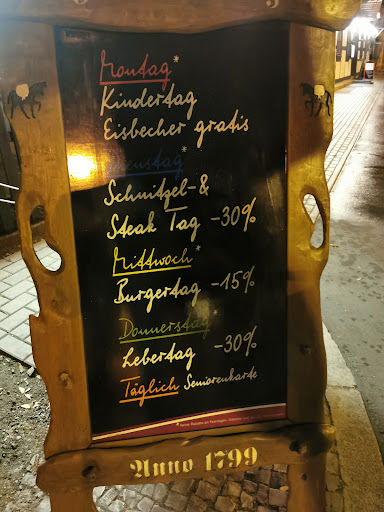 Montag*
Kindertag
Eisbecher gratis
Dienstag*
Schnitzel- &
Steak Tag -30%
Mittwoch*
Burgertag -15%
Donnerstag
Lebertag -30%
Täglich Seniorenkarte
Anno 1799